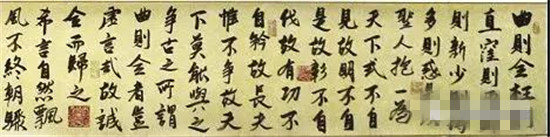 曲則全枉
直窪則
則新少
多則惑
聖人抱一為
天下式不自
見故明不自
是故彰不自
伐故有功不
自矜故長夫
惟不爭故天
下莫能與之
爭古之所謂
曲則全者豈
虛言哉故誠
全而歸之
希言自然飄
風不終朝驟